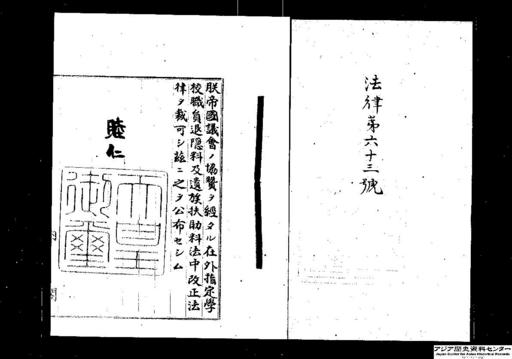 法律第六十三號
朕帝國議會ノ協贊ヲ經タル在外指定學
校職員退隱料及遺族扶助料法中改正法
律ヲ裁可シ玆ニ之ヲ公布セシム
睦仁
天皇
御璽
內閣
アジア歴史資料センター
Japan Center for Asian Historical Records